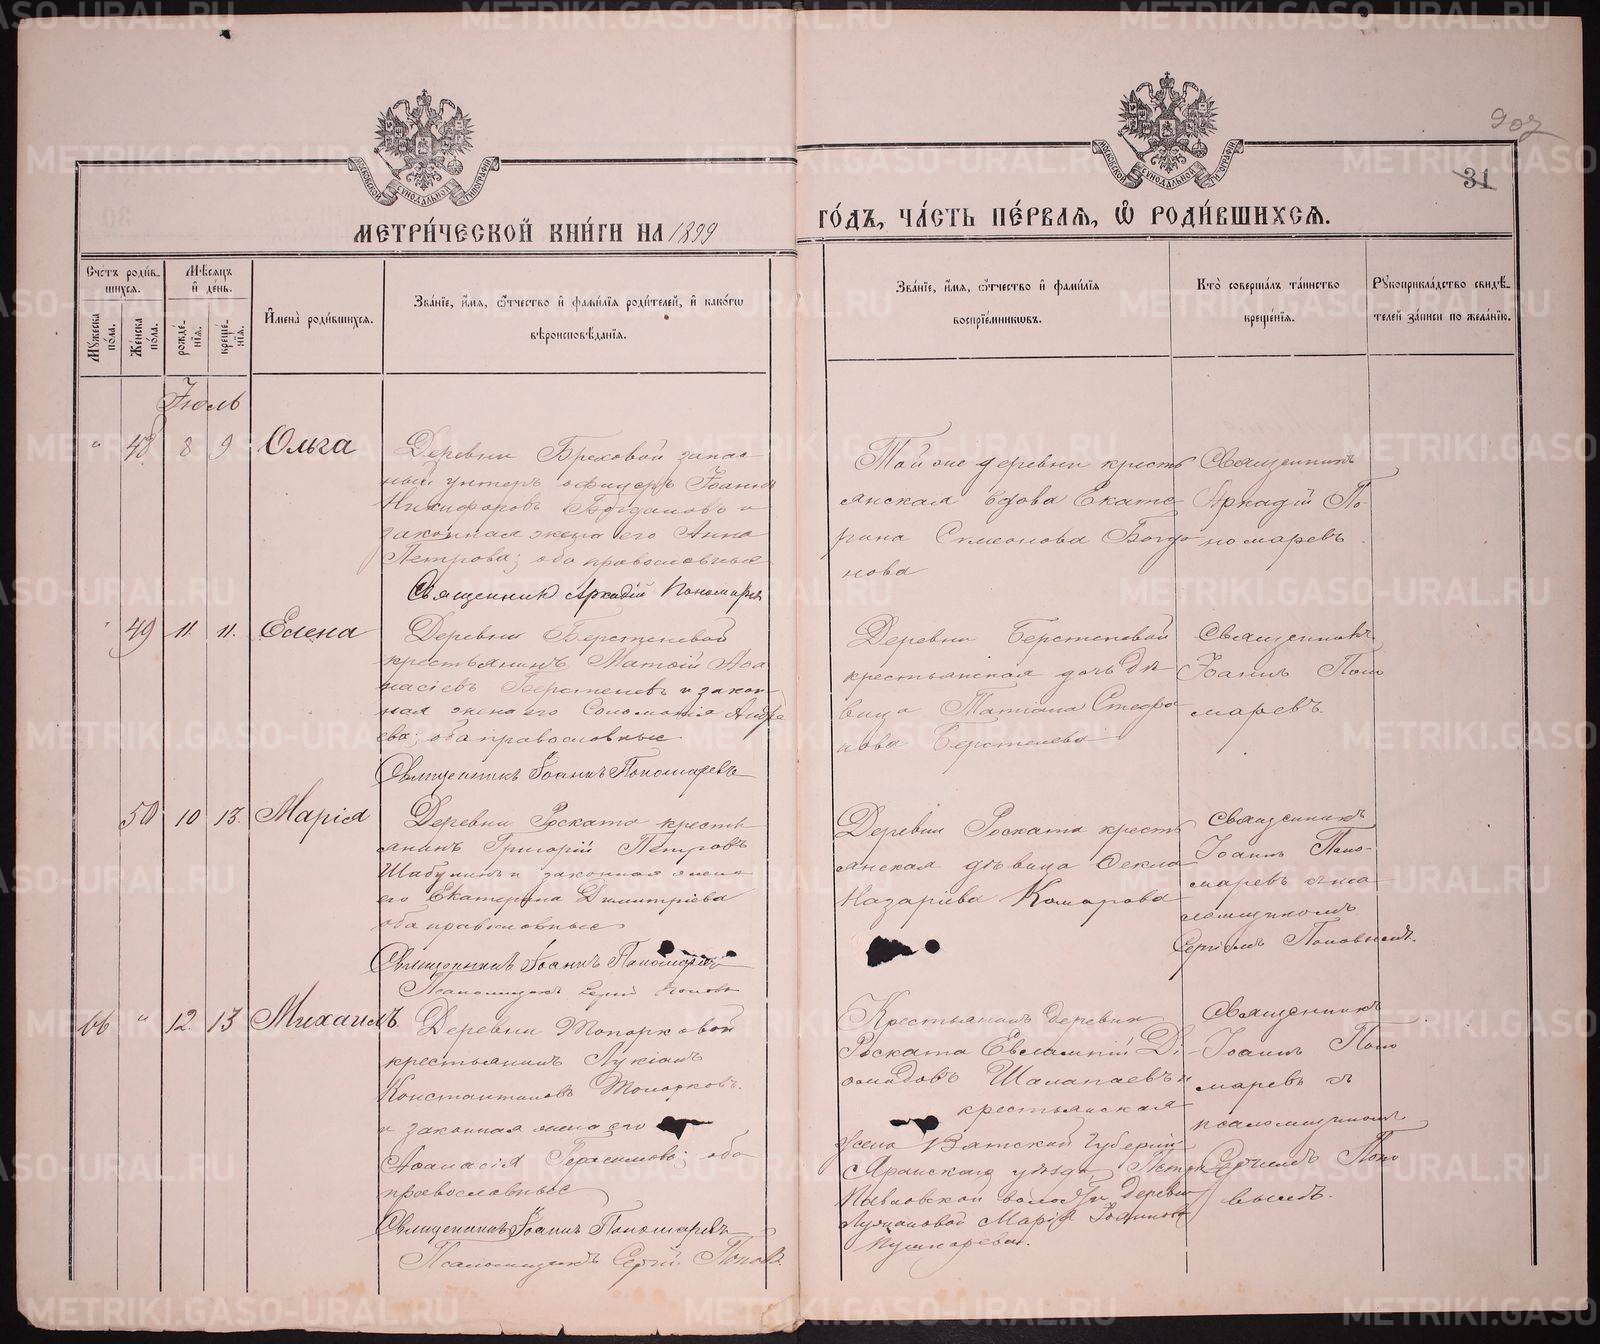 907
31
МОСКОВСКОЙ СѴНОДАЛЬНОЙ ТИПОГРАФІИ
МОСКОВСКОЙ СѴНОДАЛЬНОЙ ТИПОГРАФІИ
МЕТРИ́ЧЕСКОЙ КНИ́ГИ НА 1899
ГО́ДЪ, ЧА́СТЬ ПЕ́РВАѦ, Ѽ РОДИ́ВШИХСѦ.
Сче́тъ роди́в-
шихсѧ.
Мꙋ́жеска
по́ла.
Же́нска
по́ла.
Мѣ́сѧцъ
и҆ де́нь.
рожде́-
нїѧ.
креще́-
нїѧ.
И҆мена̀ роди́вшихсѧ.
Зва́нїе, и҆́мѧ, ѻ҆́тчество и҆ фами́лїѧ роди́телей, и҆ како́гѡ
вѣроисповѣ́данїѧ.
Зва́нїе, и҆́мѧ, ѻ҆́тчество и҆ фами́лїѧ
воспрїе́мникѡвъ.
Кто̀ соверша́лъ та́инство
креще́нїѧ.
Рꙋкоприкла́дство свидѣ́-
телей за́писи по жела́нїю.
Іюль
" 48 8 9 Ольга
Деревни Бреховой запас-
ный унтеръ офицеръ Іоаннъ
Никифоровъ Богдановъ и
законная жена его Анна
Петрова; оба православные
Священникъ Аркадій Пономаревъ
Той же деревни кресть
янская вдова Екате
рина Симеонова Богда
нова
Священникъ
Аркадій По
номаревъ.
" 49 11. 11. Елена
Деревни Берстеневой
крестьянинъ Матѳій Аѳа
насіевъ Берстеневъ и закон
ная жена его Соломонія Андре
ева; оба православные
Священникъ Іоаннъ Пономаревъ
Деревни Берстеневой
крестьянская дочь дѣ
вица Татіана Стефа
нова Берстенева
Священникъ
Іоаннъ Поно
маревъ.
50 10 13. Марія
Деревни Роската кресть
янинъ Григорій Петровъ
Шабунинъ и законная жена
его Екатерина Димитріева
оба православные
Священникъ Іоаннъ Пономаревъ
Псаломщикъ Сергій Поповъ
Деревни Роската кресть
янская дѣвица Ѳекла
Назаріева Комарова
Священникъ
Іоаннъ Поно-
маревъ съ пса
ломщикомъ
Сергіемъ Поповымъ.
66 " 12. 13 Михаилъ
Деревни Топорковой
крестьянинъ Лукіанъ
Константиновъ Топорковъ.
и законная жена его
Аѳанасія Герасимова; оба
православные
Священникъ Іоаннъ Пономаревъ
Псаломщикъ Сергій Поповъ.
Крестьянинъ деревни
Роската Евлампій Ді-
омидовъ Шалапаевъ и
крестьянская
жена Вятской губерніи
Яранскаго уѣзда Петро
Павловской волости деревни
Марія Іоаннова
Пушкарева.
Священникъ
Іоаннъ Поно
маревъ съ
псаломщикомъ
Сергіемъ Попо
вымъ.
METRIKI.GASO-URAL.RU